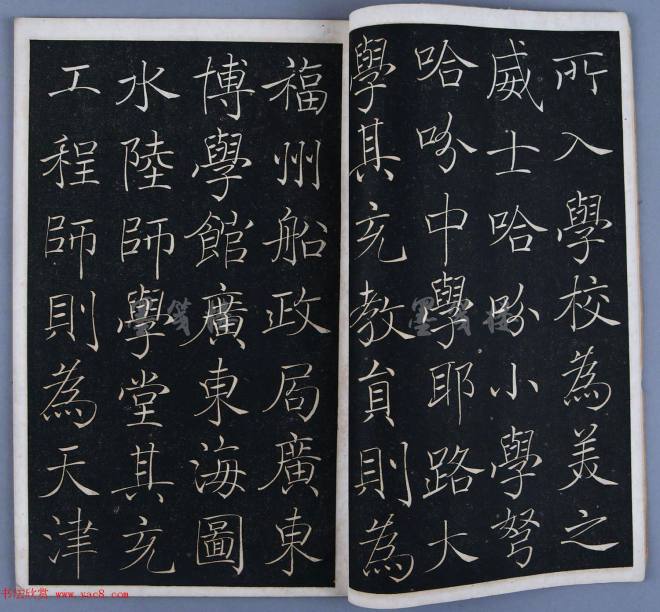 所入學校為美之
威士哈吩小學弩
哈吩中學耶路大
學其充教員則為
福州船政局廣東
博學館廣東海圖
水陸師學堂其充
工程師則為天津
书法欣赏 www.yac8.com